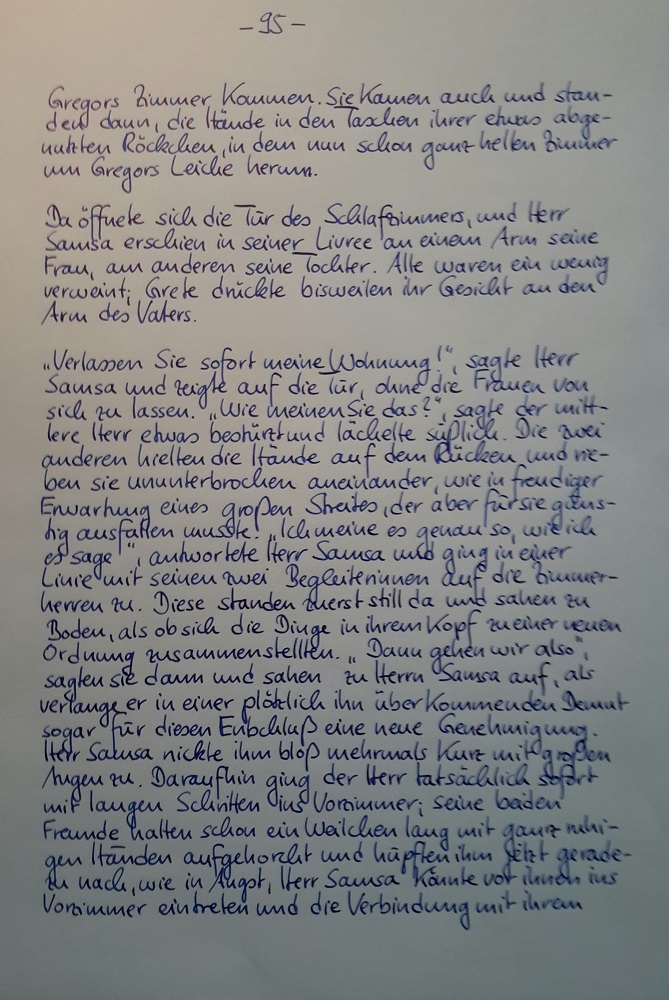 -95-
Gregors Zimmer kommen. Sie kamen auch und stan-
den dann, die Hände in den Taschen ihrer etwas abge-
nutzten Röckchen, in dem nun schon ganz hellen Zimmer
um Gregors Leiche herum.
Da öffnete sich die Tür des Schlafzimmers, und Herr
Samsa erschien in seiner Livree an einem Arm seine
Frau, am anderen seine Tochter. Alle waren ein wenig
verweint; Grete drückte bisweilen ihr Gesicht an den
Arm des Vaters.
„Verlassen Sie sofort meine Wohnung!“, sagte Herr
Samsa und zeigte auf die Tür, ohne die Frauen von
sich zu lassen. „Wie meinen Sie das?“, sagte der mitt-
lere Herr etwas bestürzt und lächelte süßlich. Die zwei
anderen hielten die Hände auf dem Rücken und rie-
ben sie ununterbrochen aneinander, wie in freudiger
Erwartung eines großen Streites, der aber für sie güns-
tig ausfallen musste. „Ich meine es genau so, wie ich
es sage“, antwortete Herr Samsa und ging in einer
Linie mit seinen zwei Begleiterinnen auf die Zimmer-
herren zu. Diese standen zuerst still da und sahen zu
Boden, als ob sich die Dinge in ihrem Kopf zu einer neuen
Ordnung zusammenstellten. „Dann gehen wir also“,
sagten sie dann und sahen zu Herrn Samsa auf, als
verlange er in einer plötzlich ihn überkommenden Demut
sogar für diesen Entschluß eine neue Genehmigung.
Herr Samsa nickte ihm bloß mehrmals kurz mit großen
Augen zu. Daraufhin ging der Herr tatsächlich sofort
mit langen Schritten ins Vorzimmer; seine beiden
Freunde hatten schon ein Weilchen lang mit ganz ruhi-
gen Händen aufgehorcht und hüpften ihm jetzt gerade-
zu nach, wie in Angst, Herr Samsa könnte vor ihnen ins
Vorzimmer eintreten und die Verbindung mit ihrem